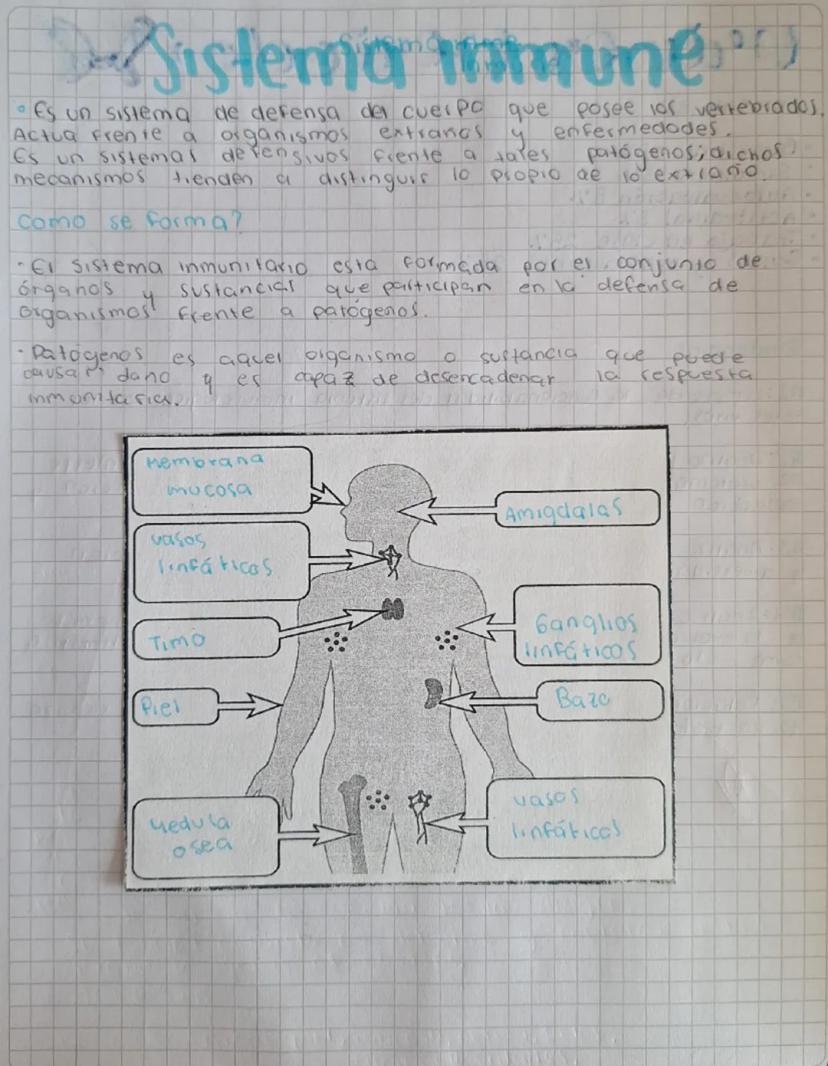 Sistema inmune
• Es un sistema de defensa del cuerpo que posee los vertebrados.
Actua frente a organismos extraños y enfermedades.
Es un sistemas defensivos frente a tales patógenos; dichos
mecanismos tienden a distinguir lo propio de lo extraño.
Como se forma?
• El sistema inmunitario esta formada por el conjunto de
órganos y sustancias que participan en la defensa de
organismos frente a patógenos.
• Patogenos es aquel organismo o sustancia que puede
causar daño y es capaz de desencadenar la respuesta
inmunitaria.
Membrana
mucosa
Amigdalas
vasos
linfáticos
Timo
Ganglios
linfáticos
Piel
Bazo
Medula
osea
vasos
linfáticos